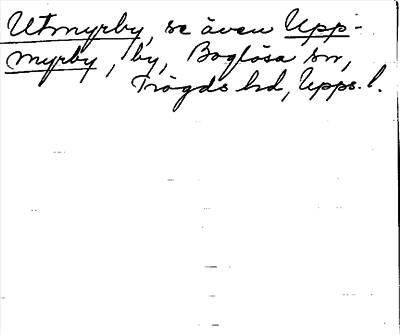 Utmyrby, se även Upp-
myrby, by, Boglösa sn,
Trögds hd, Upps. l.